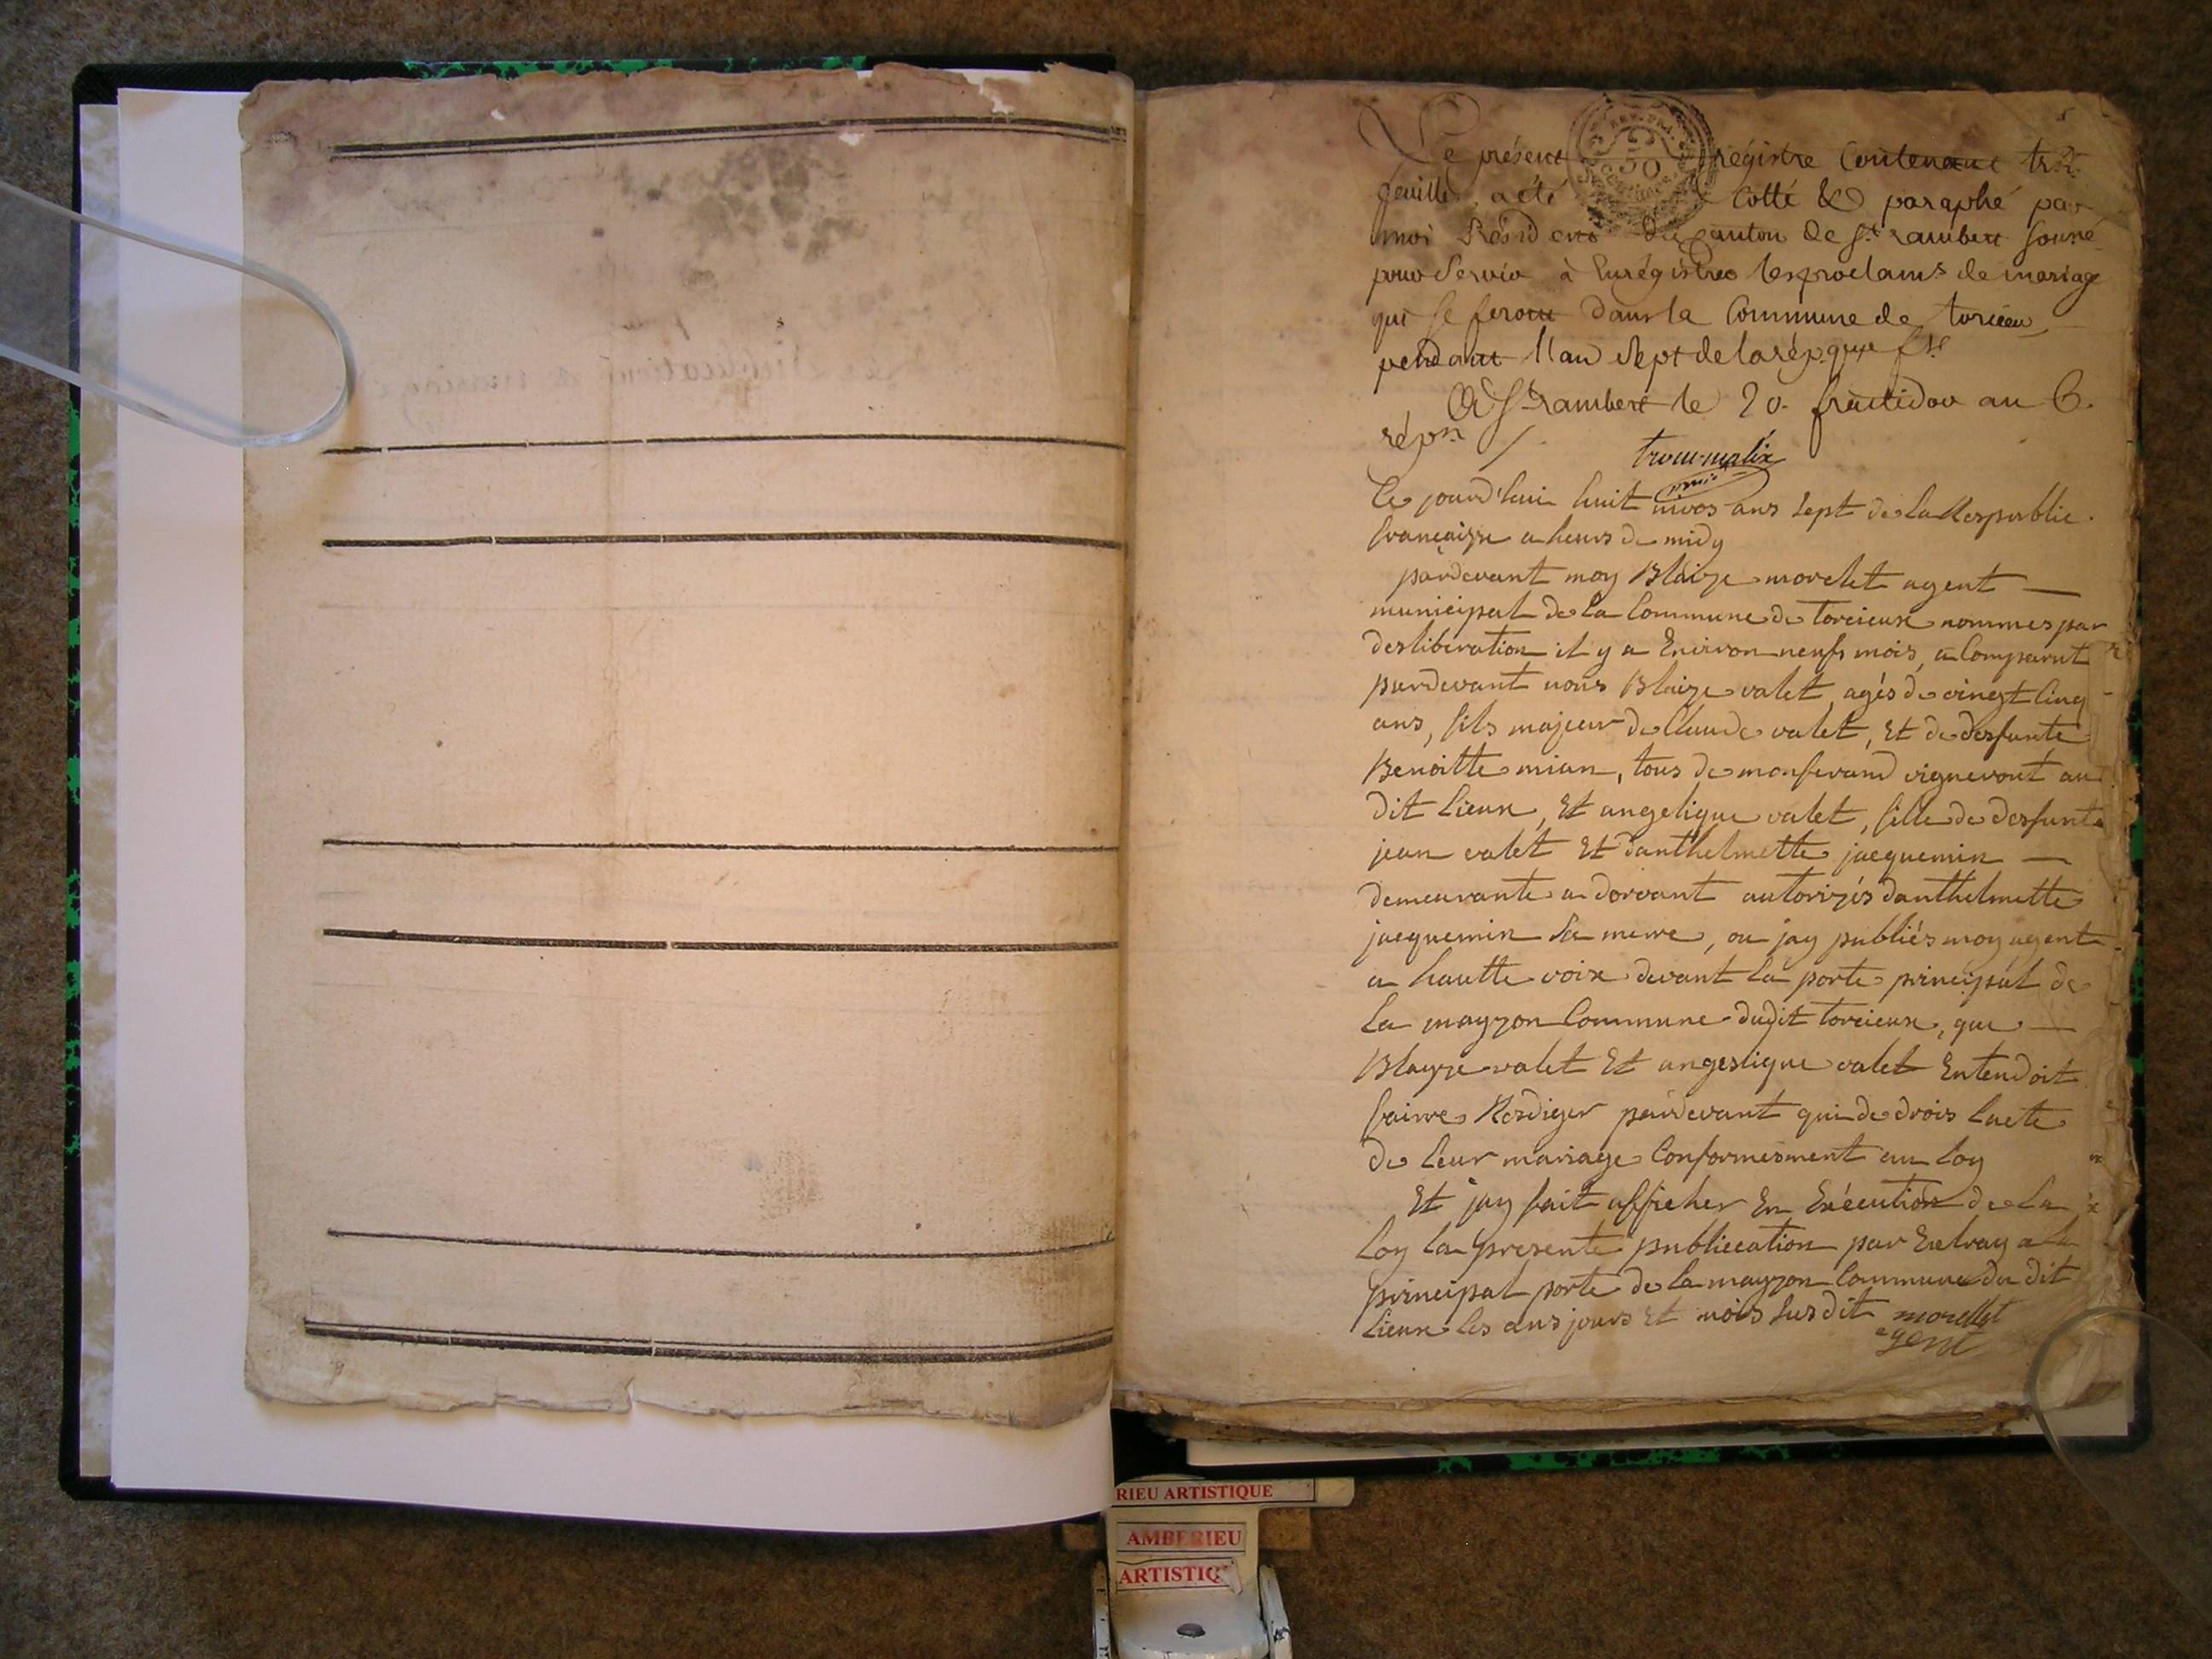 Le présent registre Contenant
feuille, a été Cotté & paraphé par
moi Président du Canton de St rambert
pour Servir à Enrégistrer les proclams de mariage
qui se feront dans la Commune de torcieu
pendant l'an Sept de la répque fse
A St rambert le 20 fructidor an 6.
répn
trocu-merlix
Ce jourd'hui huit nivos ans sept de la Respublic
françaisze a heurs de midy
pardevant moy Blaize morelet agent
municipal de la Commune de Torcieux nommes par
deslibération il y a Environ neufs mois, a Comparut
pardevant nous Blaize valet, agés de vingt Cinq
ans, fils majeur de Claude valet, Et de desfunte
Benoitte mian, tous de monferand vigneront au
dit Lieux, Et angelique valet, fille de desfunt
jean valet Et danthelmette jacquemin
demeurante a dorvant autorizés danthelmette
jacquemin Sa merre, ou jay publiés moy agent
a hautte voix devant la porte principal de
La mayzon Commune dudit torcieux, que
Blayze valet Et angeslique valet Entendoit
fairre Resdiger pardevant qui de drois Lacte
de Leur mariage Conformesment au Loy
Et jay fait afficher En Exécution de La
Loy La presente publiccation par Extray a la
principal porte de la mayzon Commune du dit
Lieux les ans jours Et mois susdit morellet
agent
REP. FRA.
50
RIEU ARTISTIQUE
AMBERIEU
ARTISTIQ